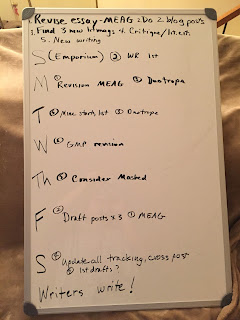 1. Revise essay-MEAG 2. Do 2 blog posts
3. Find 3 new lit mags 4. Critique/
5. New writing
S (Emporium) ② WR 1st
M ① Revision MEAG ② Duotrope
T ④ Nine starts 1st ① Duotrope
W ⑥ GMP revision
Th ① Consider Masted
F ② Draft posts x 3 ① MEAG
S ① Update all tracking, cross post
② 1st drafts?
Writers write!